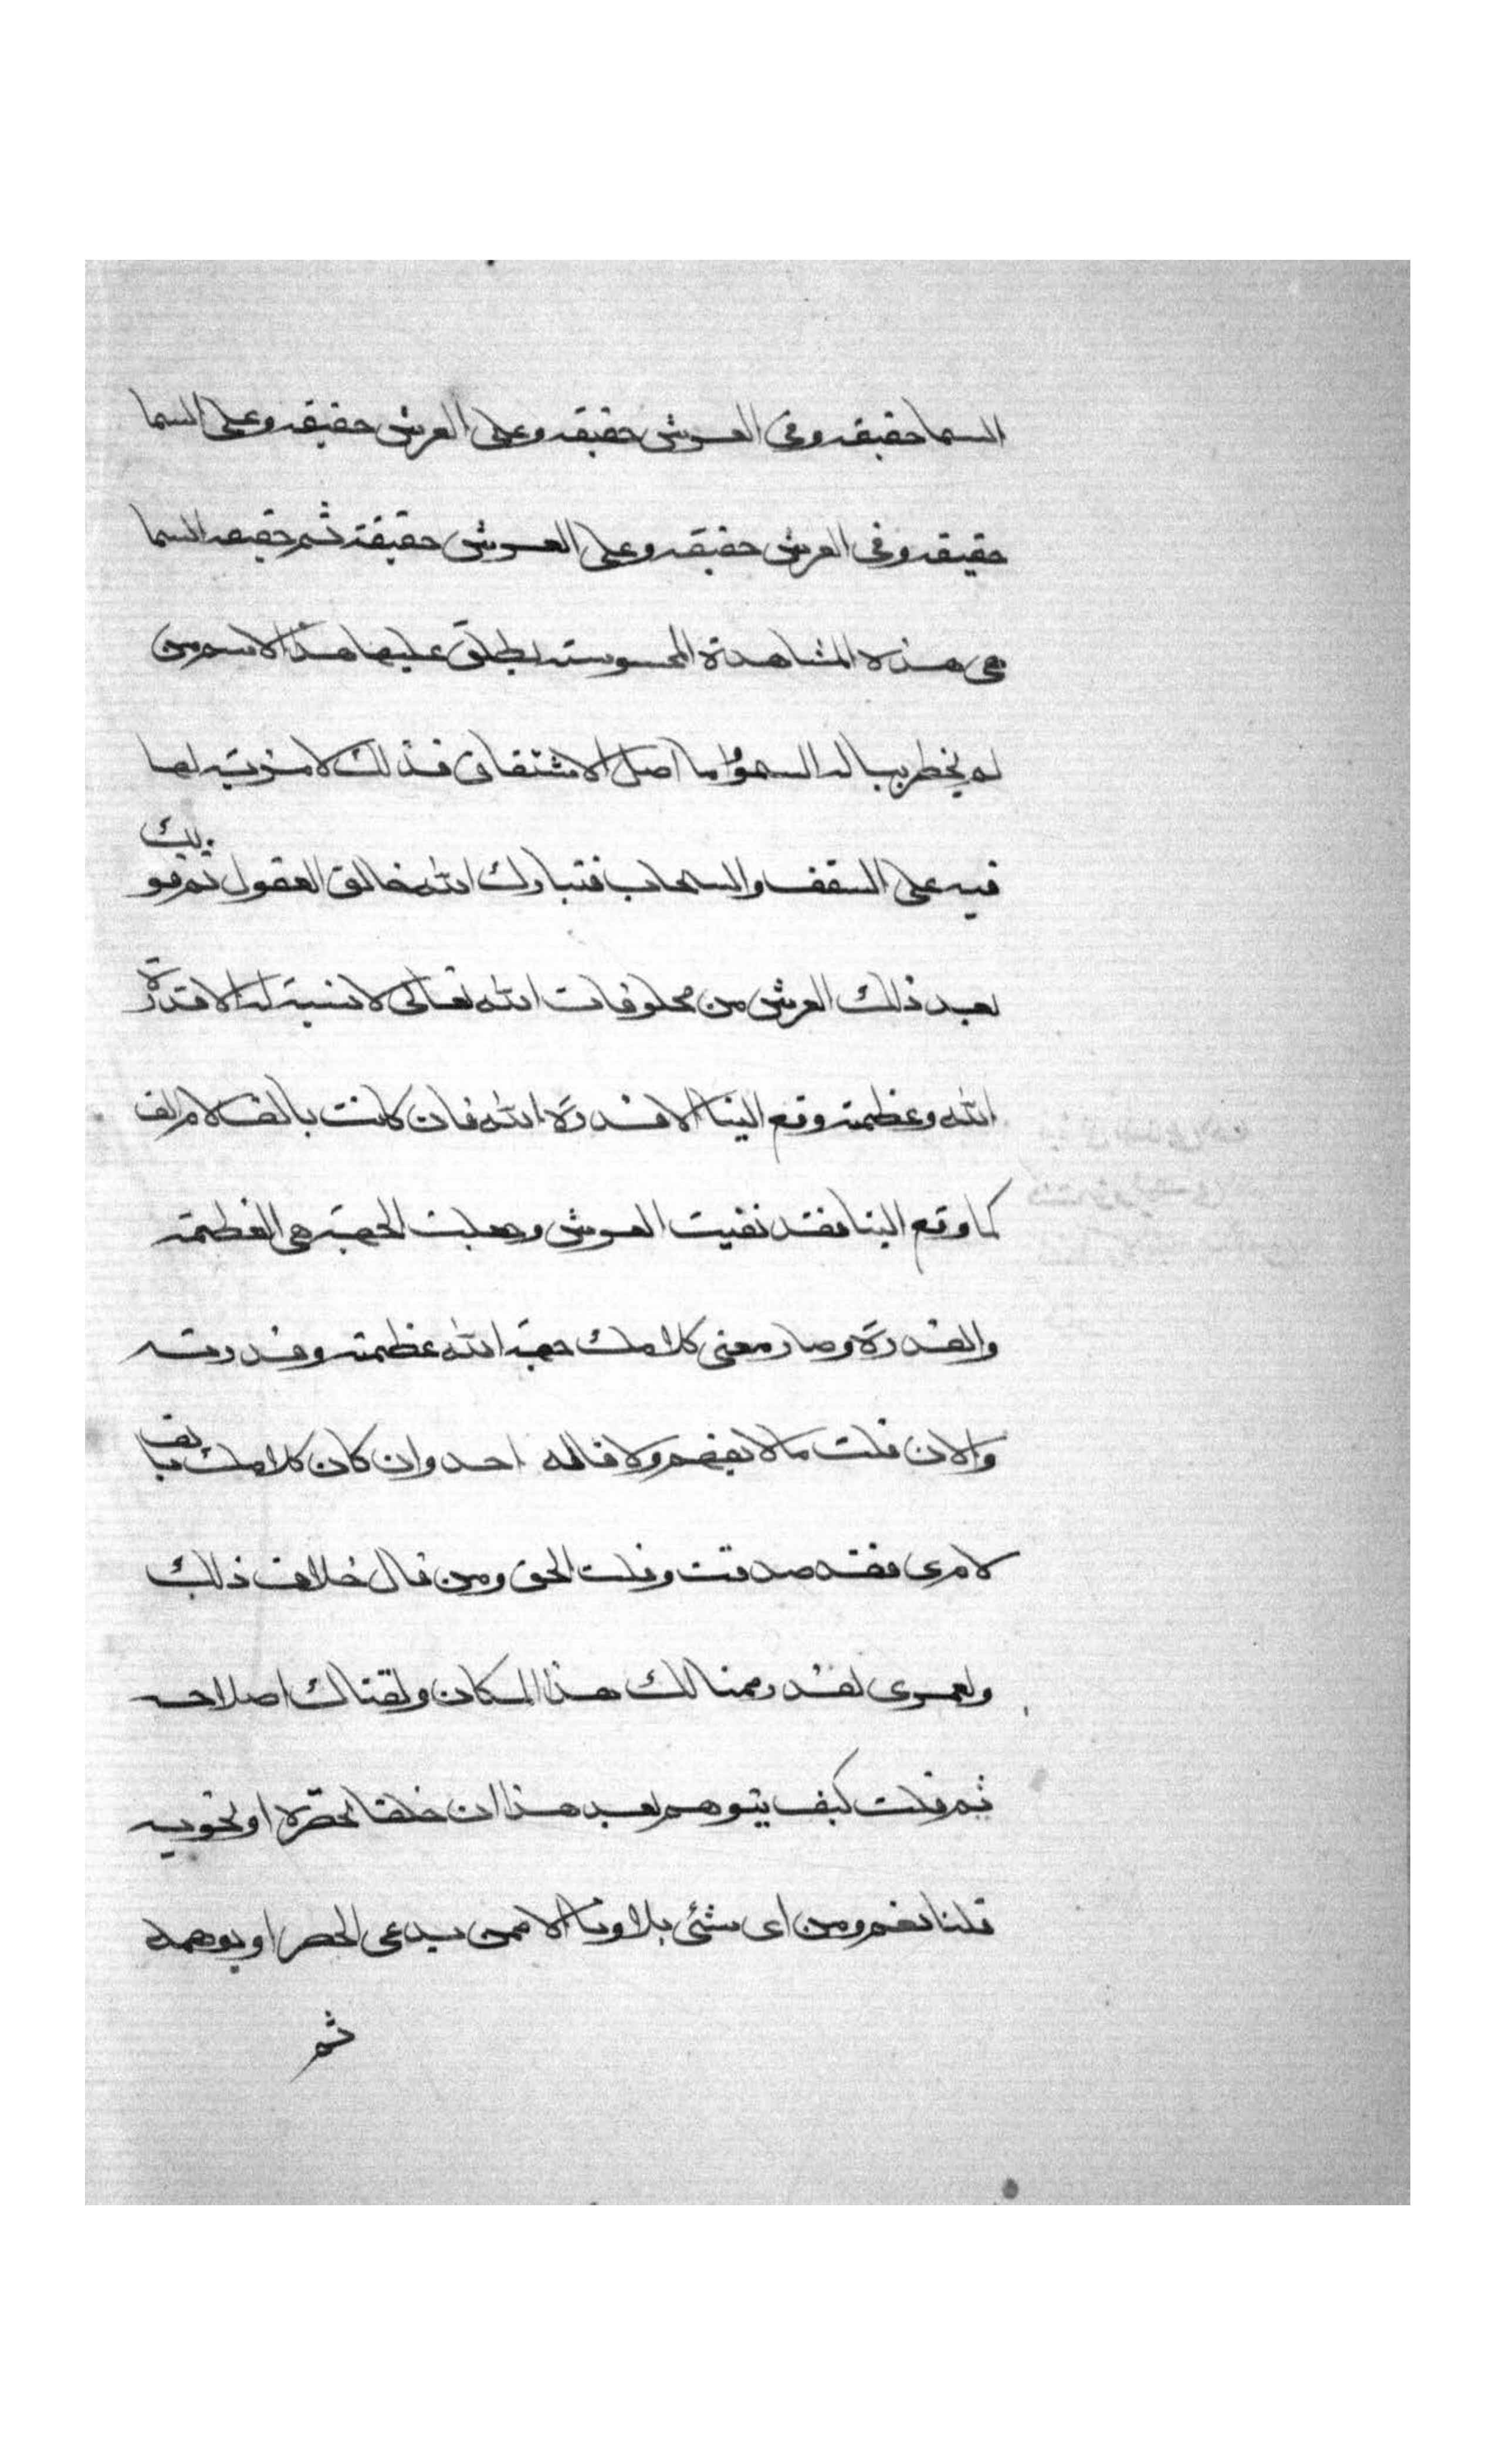 السما حقيقه وفى العرش حقيقه وعلى العرش حقيقه وعلى السما
حقيقه وفى العرش حقيقه وعلى العرش حقيقة ثم حقيقه السما
هى هذه المشاهدة المحسوسة يطلق عليها هذا الاسم من
لم يخطر بباله السمو واما اصل الاشتقاق فذلك لا مزية لها
فيه على السقف والسحاب فتبارك الله خالق العقول ثم قولك
بعد ذلك العرش من مخلوقات الله تعالى لا نسبة له الا قدرة
الله وعظمته وقع الينا الا قدرة الله فان كانت بالف لام الف
كما وقع الينا فقد نفيت العرش وجعلت الجهة هى العظمة
والقدرة وصار معنى كلامك جهة الله عظمته وقدرته
والان قلت ما لا يفهم ولا قاله احد وان كان كلامك بالف
لام ى فقد صدقت وقلت الحق ومن قال خلاف ذلك
ولعمرى لقد رممنا لك هذا المكان ولقناك اصلاحه
ثم قلت كيف يتوهم بعد هذا ان خلقا يحصره او يحويه
قلنا نعم ومن اى شئ بلاونا الا ممن يدعى الحصر او يوهمه
ثم